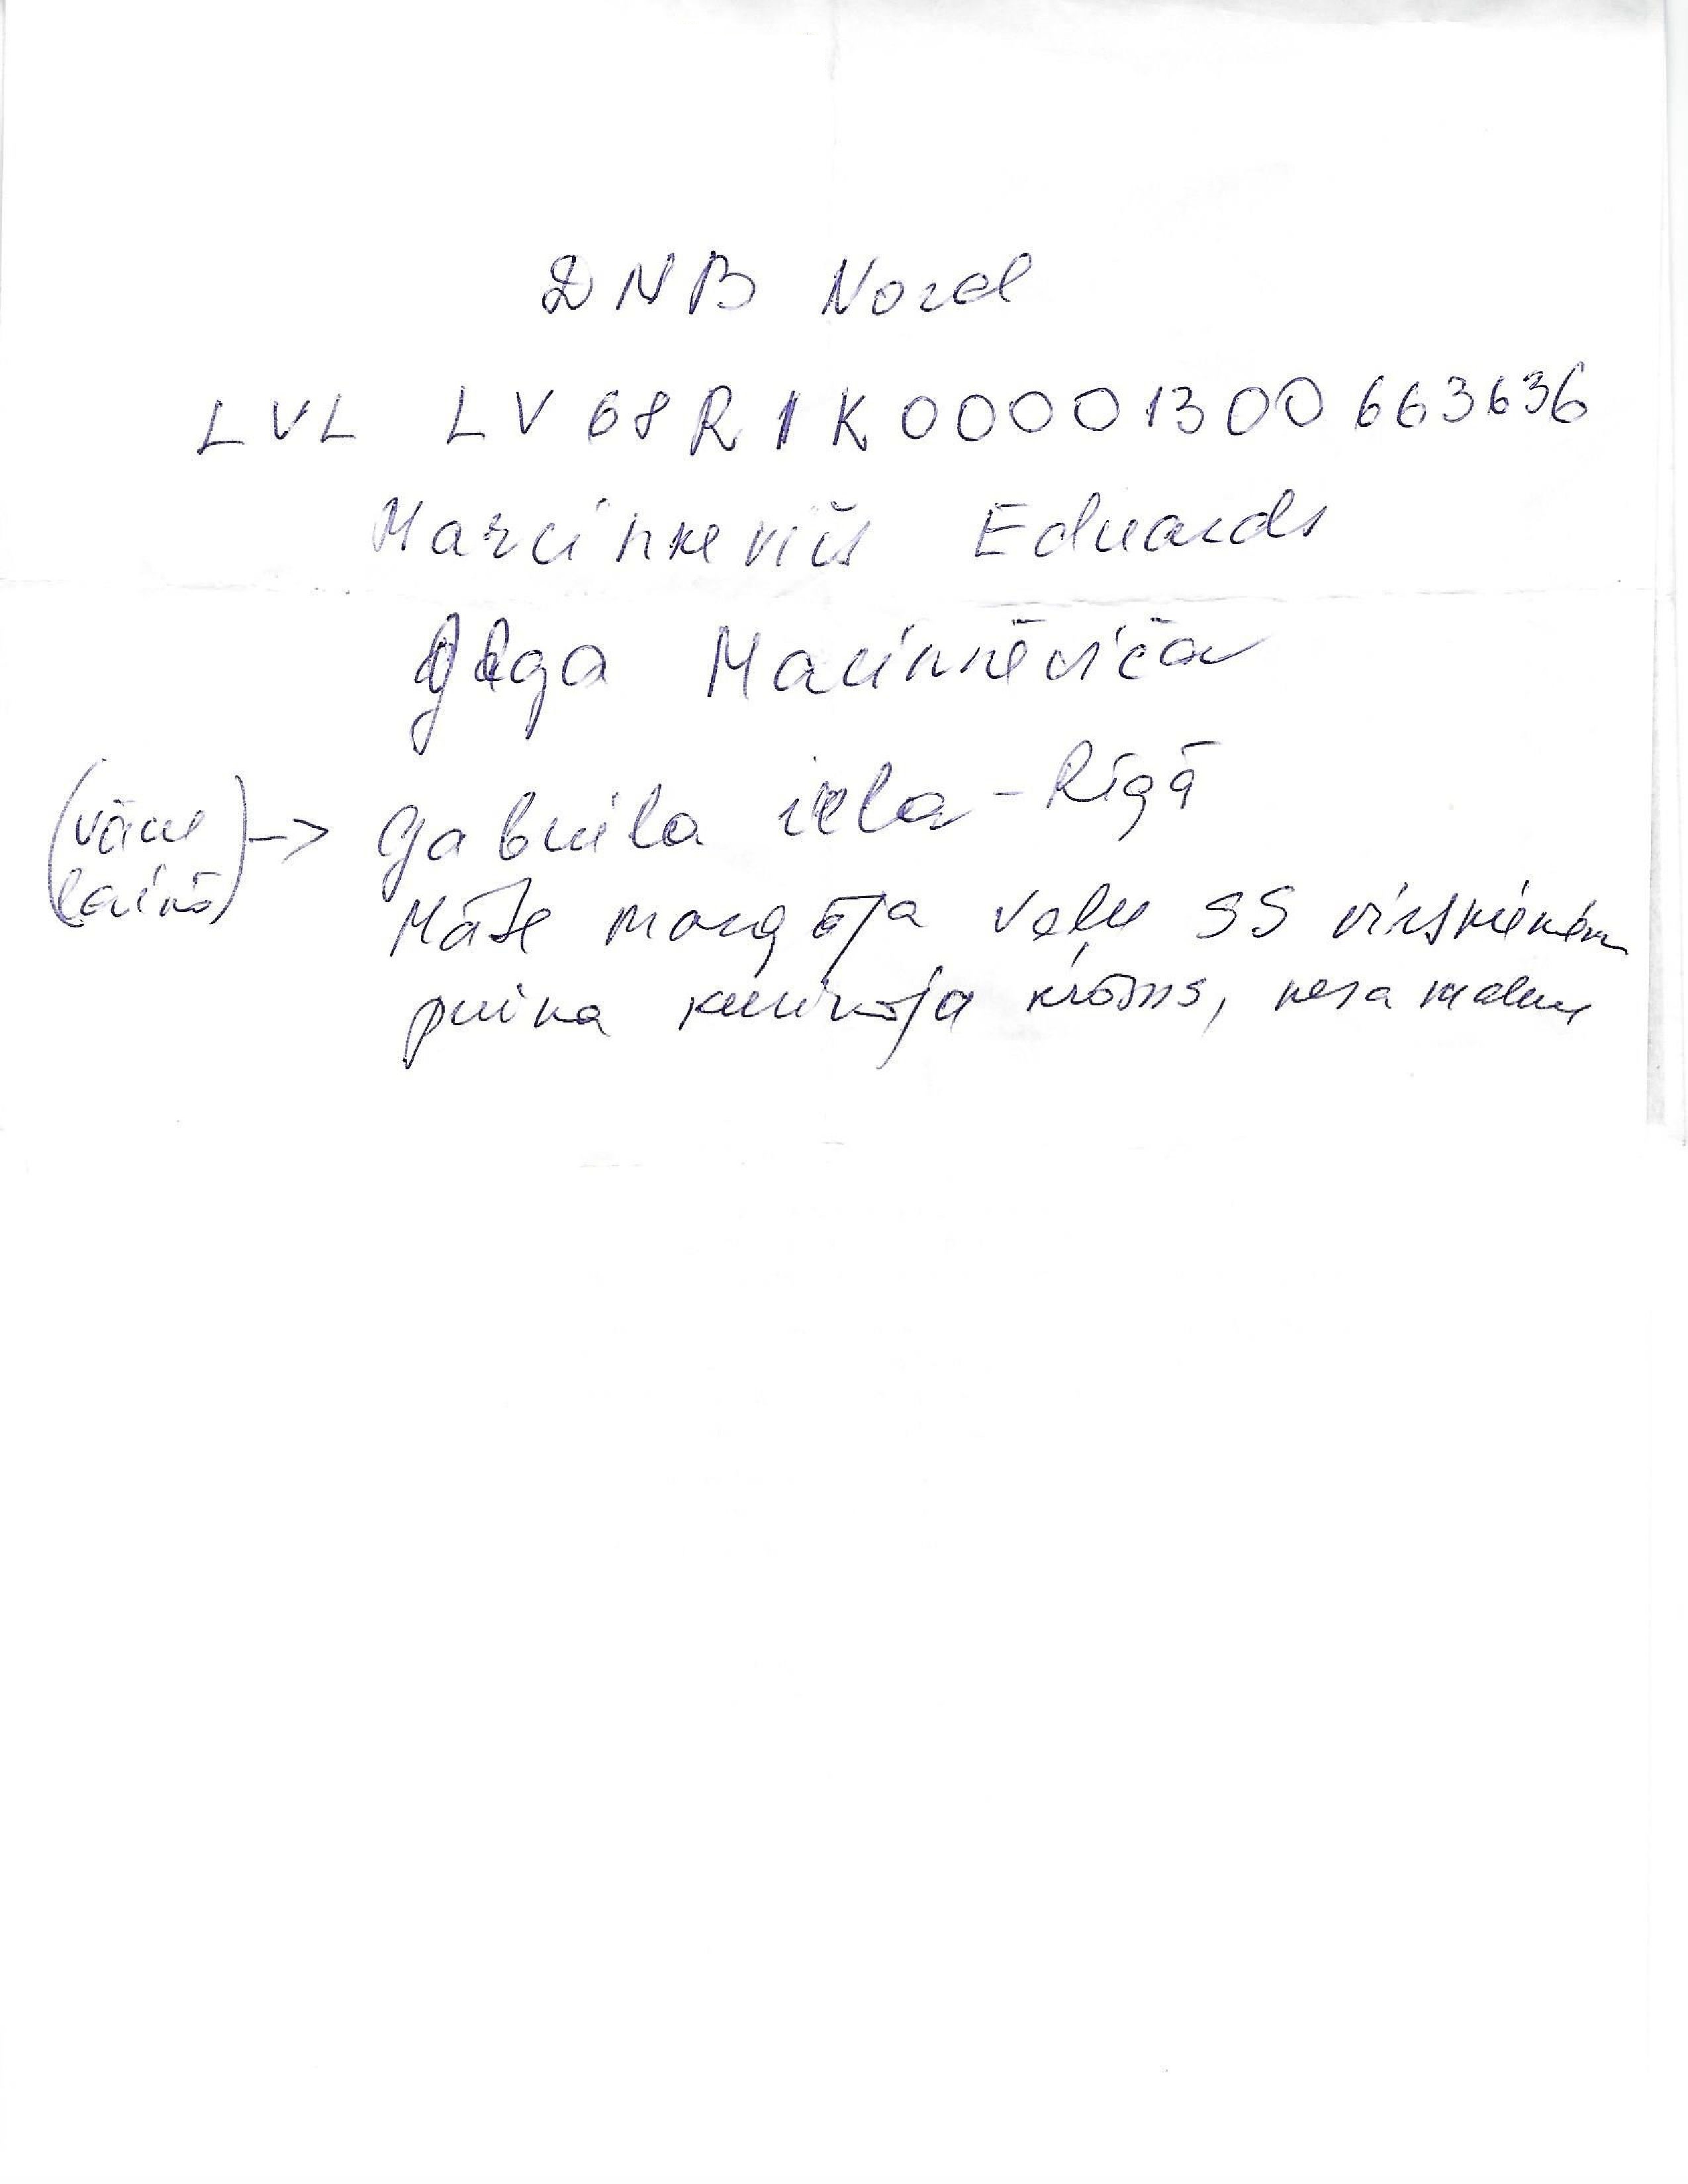 DNB Nord
LVL LV68RIK00001300663636
Marcinkevičs Eduards
Olga Marcinkēviča
(vācu laikā) -> Gabriela iela - Rīgā
Māte mazgāja veļu SS virsniekiem
puika kurināja krāsns, nesa malku